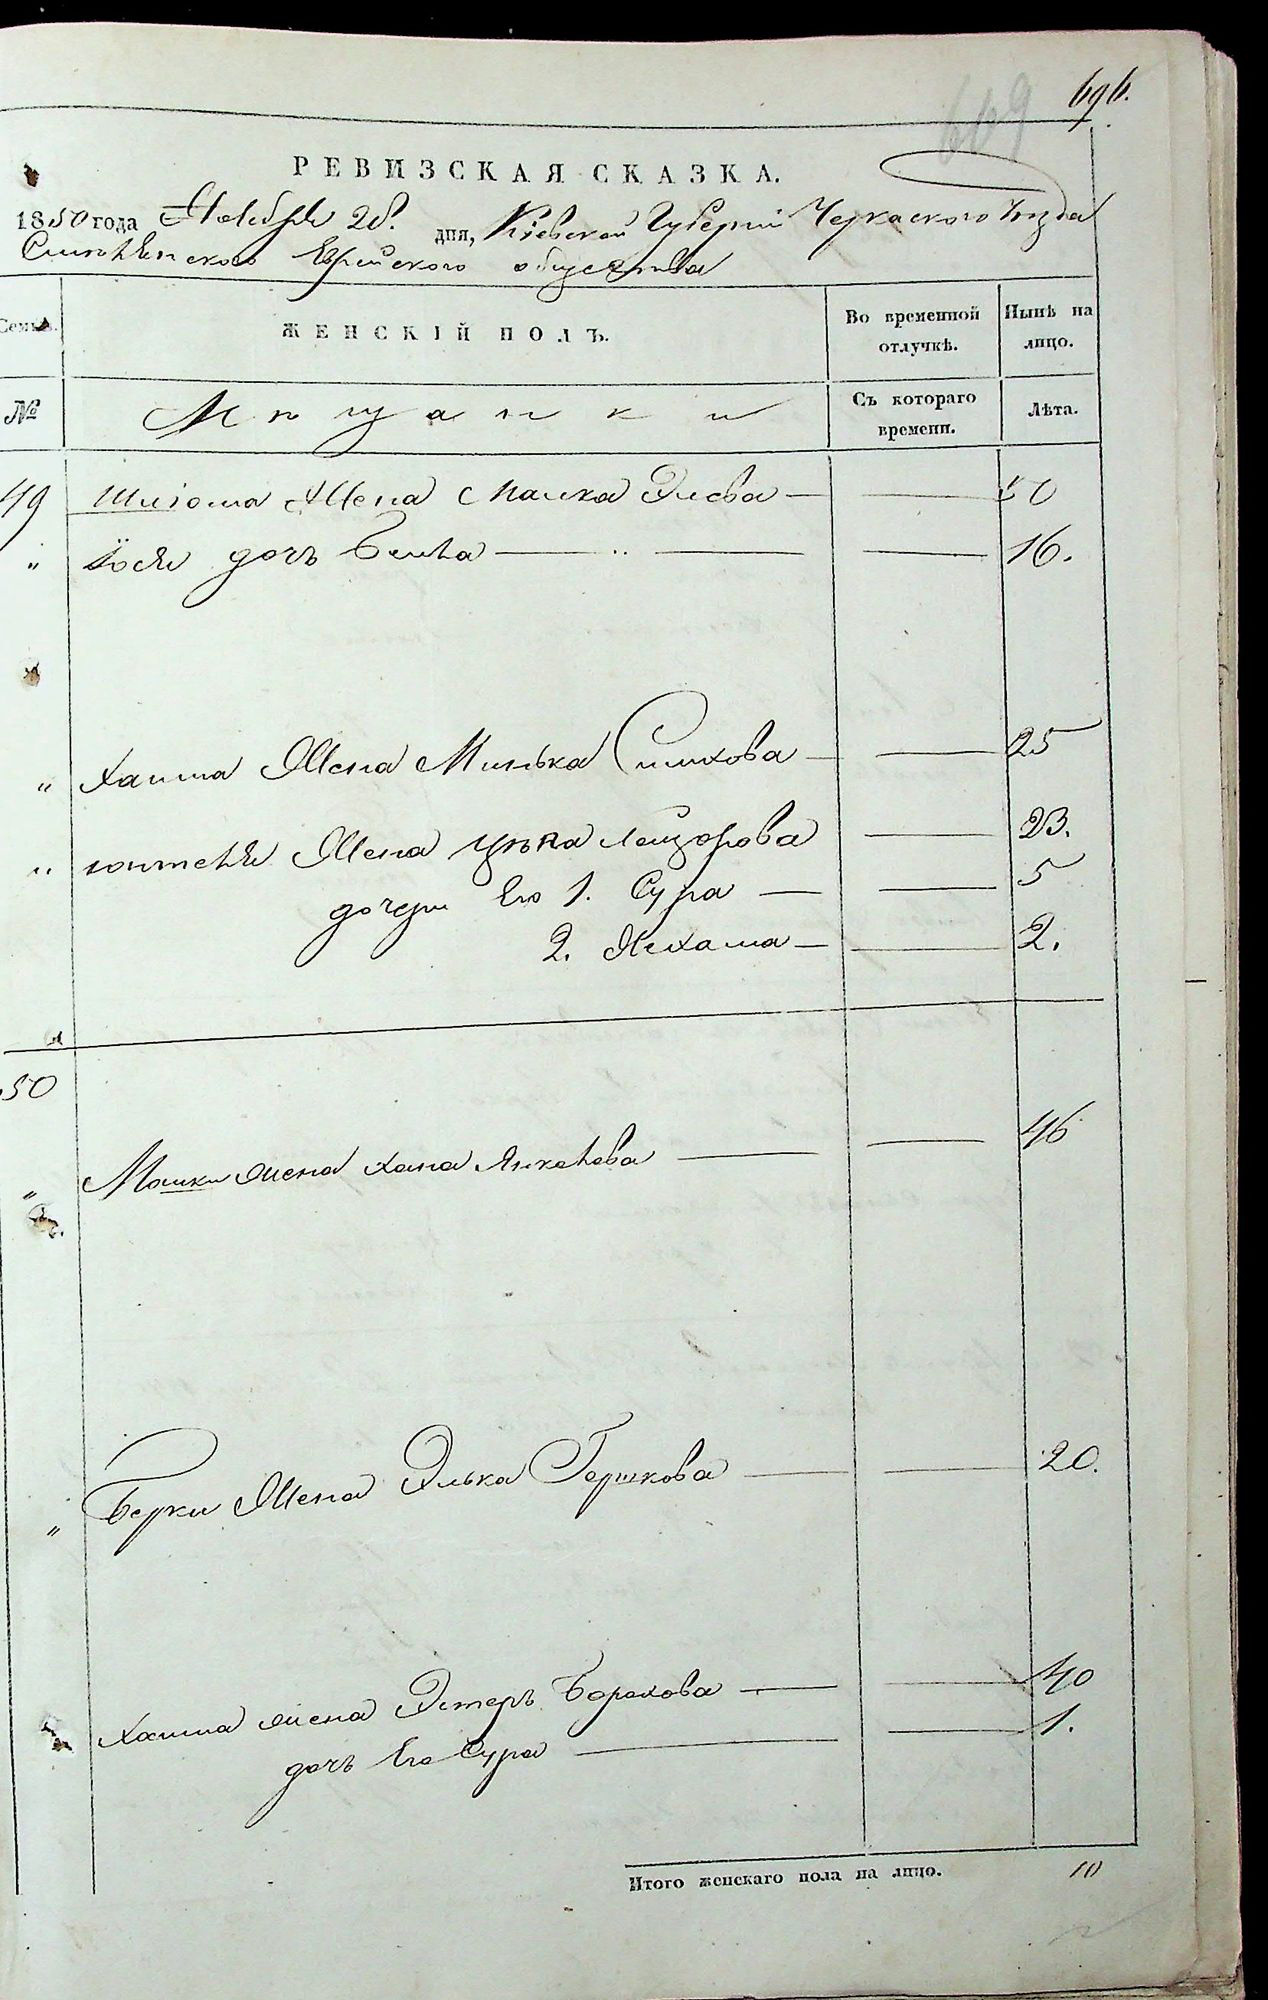 696.
669
РЕВИЗСКАЯ СКАЗКА.
1850 года Ноября 28. дня, Кіевской Губерніи Черкаского Уезда
Еврейского общества
Семьи. ЖЕНСКІЙ ПОЛЪ. Во временной отлучкѣ. Нынѣ на лицо.
№ Мещанки Съ котораго времени. Лѣта.
49 Шлиома Жена Малка Элева 50
" Іося дочь Бейла 16.
" Хаима Жена Минька Симхова 25
" Жена Лейзорова 23.
дочери Его 1. Сура 5
2. Нехама 2.
50
" Мошки жена Хана Янкелева 46
" Берки Жена Элька Гершкова 20.
Хаима жена Эстеръ Борохова 40
дочь Его Сура 1.
Итого женскаго пола на лицо. 10